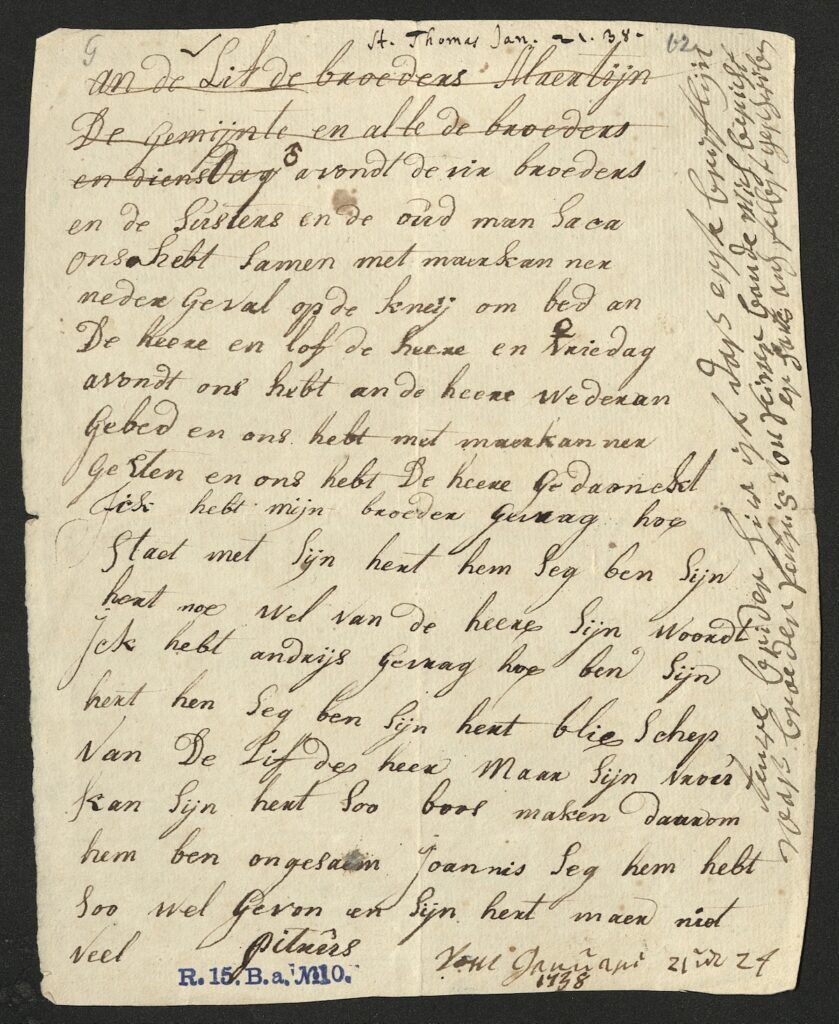 G
St. Thomas Jan. 21. 38.
62
an de Lif de broeders Maertijn
De gemijnte en alle de broeders
en diensdag ♂ avondt de vir broeders
en de Susters en de oud man Saca
ons hebt Samen met maerkanner
neder geval op de kneij om bed an
De heere en lof de heere en ♀ Vriedag
avondt ons hebt an de heere wederan
Gebed en ons hebt met maerkanner
Geeten en ons hebt De heere Gedaanckt
Jck hebt mijn broeder Gevrag hoe
Staet met Sijn hert hem Seg ben Sijn
hert noe wel van de heere Sijn woordt
Jck hebt andrijs Gevrag hoe ben Sijn
hert hen Seg ben Sijn hert blie Schep
Van De Lif de heer Maar Sijn vrou
kan Sijn hert Soo boos maken daarom
hem ben ongesaem Joannis Seg hem hebt
Soo wel Gevon en Sijn hert maer niet
veel pitrus
Januari 21 24
1738
R. 15. B. a. No 10.
bruder hier ist das erste brifflijn
Was broeder von seiner hande mich
er hats auf selbst geschriben